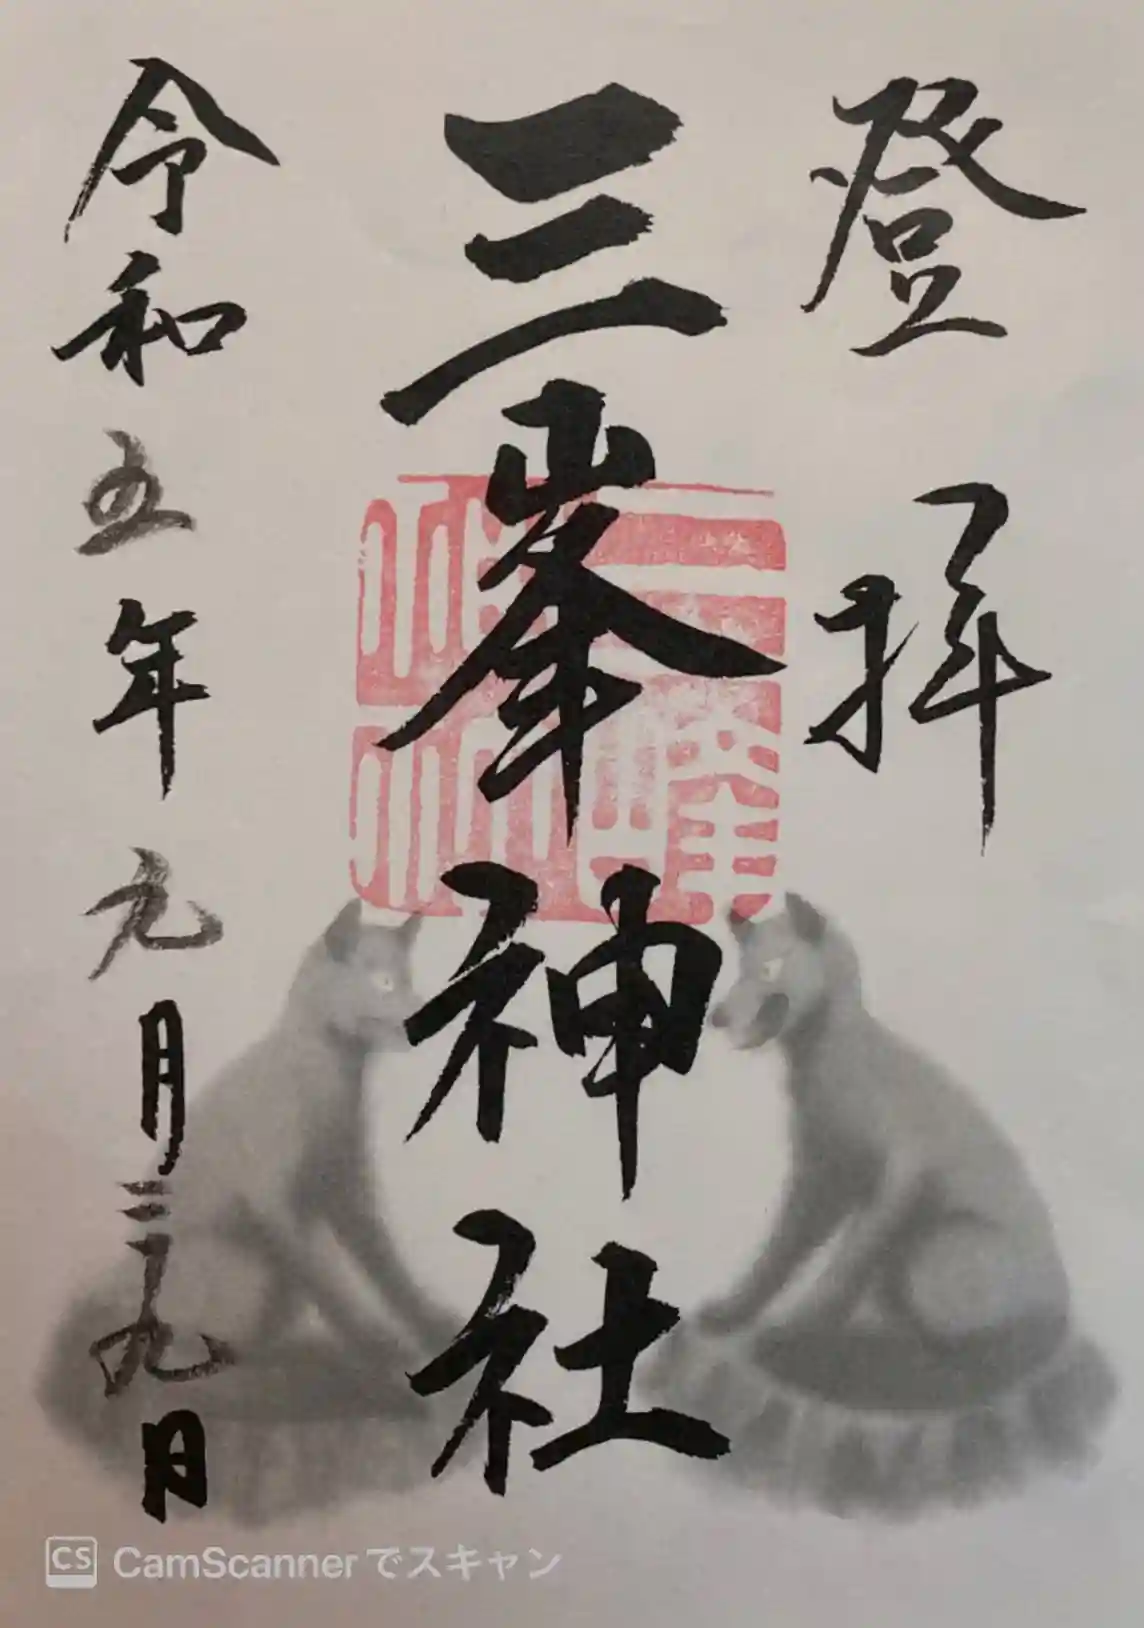 登拝
三峯神社
令和五年九月二十九日
CS CamScannerでスキャン